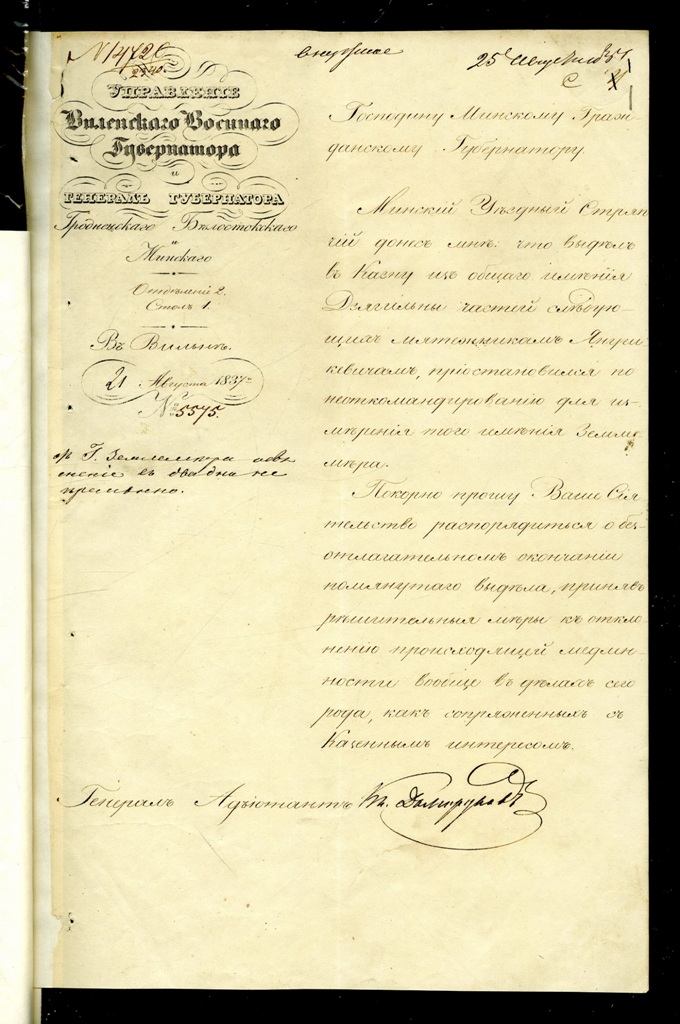 № 14720
2340.
25 августа 37
УПРАВЛЕНІЕ
Виленскаго Военнаго
Губернатора
и
ГЕНЕРАЛЪ ГУБЕРНАТОРА
Гродненскаго Бѣлостокскаго
и
Минскаго
Отдѣленіе 2.
Столъ 1.
Въ Вильнѣ.
21 Августа 1837 г
№ 5575.
Г. Землемера
въ два дня не
премѣнно.
Господину Минскому Граж-
данскому Губернатору.
Минскій Уѣздный Стряп-
чій донесъ мнѣ: что выдѣлъ
въ Казну изъ общаго имѣнія
Дзягильны частей слѣдую-
щихъ мятежникамъ Янущ-
кевичамъ, пріостановился по
неоткомандированію для из-
мѣренія того имѣнія Земле-
мѣра.
Покорно прошу Ваше Сія-
тельство распорядиться о без-
отлагательномъ окончаніи
помянутаго выдѣла, принявъ
рѣшительныя мѣры къ откло-
ненію происходящей медлен-
ности вообще въ дѣлахъ сего
рода, какъ сопряженныхъ съ
Казеннымъ интересомъ.
Генералъ Адъютантъ Кн. Долгоруковъ